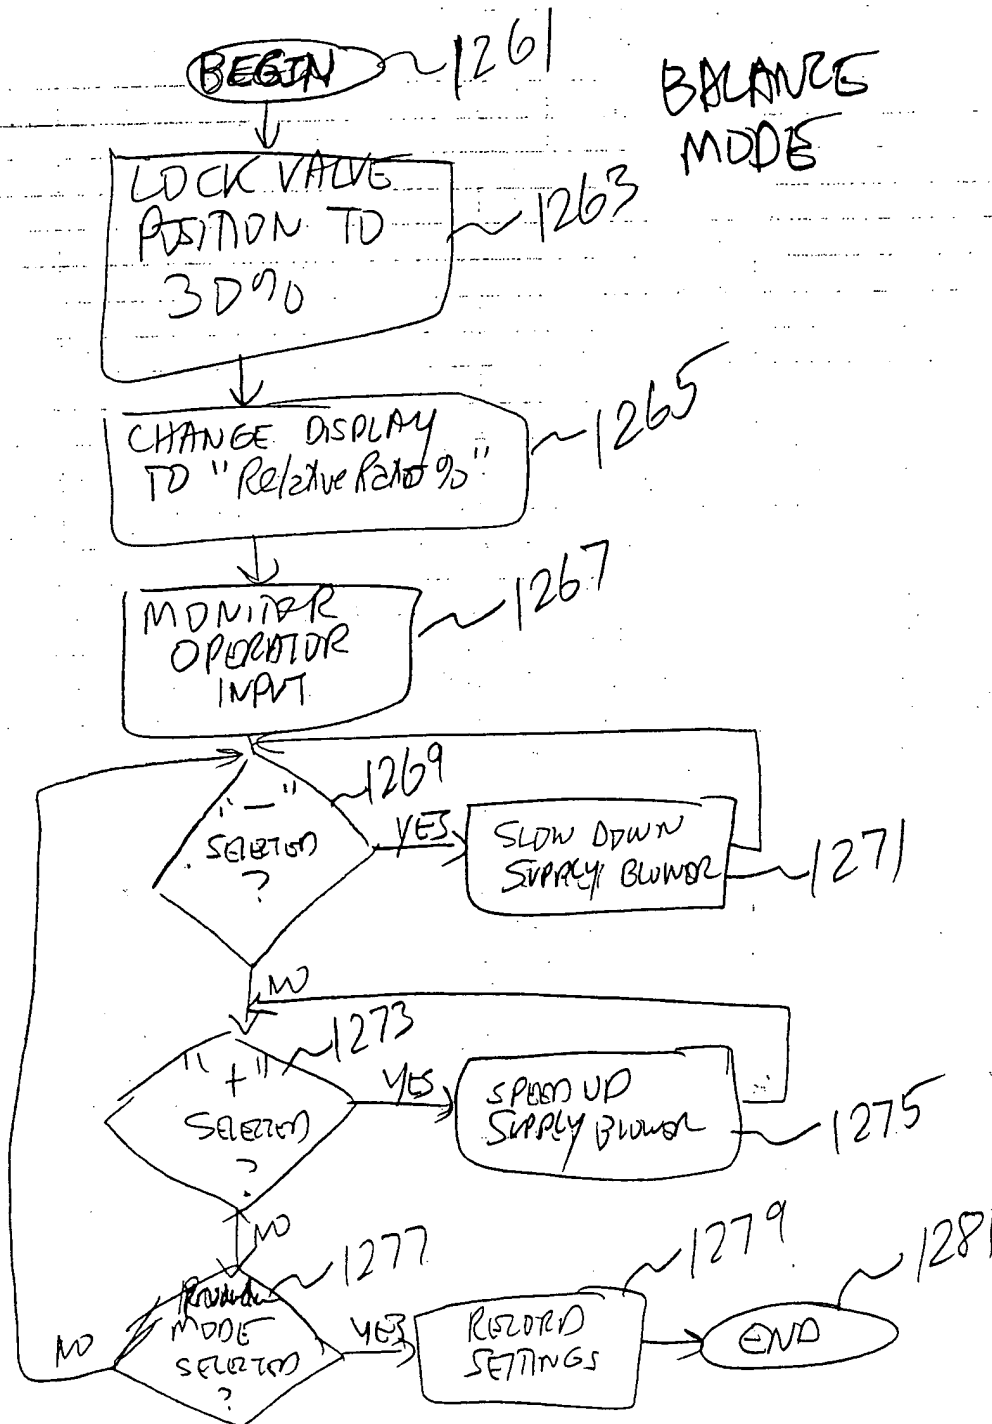 BEGIN
1261
BALANCE
MODE
LOCK VALVE
POSITION TO
30%
1263
CHANGE DISPLAY
TO "Relative Rate %"
1265
MONITOR
OPERATOR
INPUT
1267
"-"
SELECTED
?
1269
YES
SLOW DOWN
SUPPLY BLOWER
1271
NO
"+"
SELECTED
?
1273
YES
SPEED UP
SUPPLY BLOWER
1275
NO
MODE
SELECTED
?
1277
NO
YES
RECORD
SETTINGS
1279
END
1281